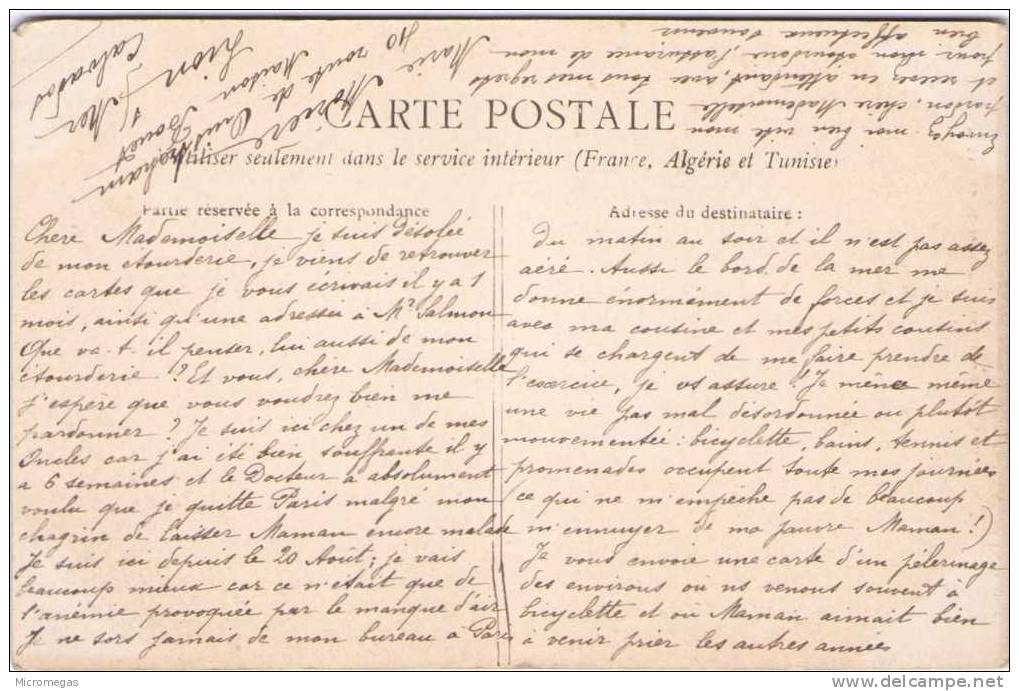 CARTE POSTALE
utiliser seulement dans le service intérieur (France, Algérie et Tunisie)
Partie réservée à la correspondance
Chère Mademoiselle je suis désolée
de mon étourderie, je viens de retrouver
les cartes que je vous écrivais il y a 1
mois, ainsi qu'une adressée à Mr Salmon
Que va-t-il penser, lui aussi de mon
étourderie ? Et vous, chère Mademoiselle
j'espère que vous voudrez bien me
pardonner ? Je suis ici chez un de mes
Oncles car j'ai été bien souffrante il y
a 6 semaines et le Docteur a absolument
voulu que je quitte Paris malgré mon
chagrin de laisser Maman encore malade
Je suis ici depuis le 20 Août; je vais
beaucoup mieux car ce n'était que de
l'anémie provoquée par le manque d'air
Je ne sors jamais de mon bureau à Paris
Adresse du destinataire :
du matin au soir et il n'est pas assez
aéré. Aussi le bord de la mer me
donne énormément de forces et je suis
avec ma cousine et mes petits cousins
qui se chargent de me faire prendre de
l'exercice, je vs assure ! Je mène même
une vie pas mal désordonnée ou plutôt
mouvementée : bicyclette, bains, tennis et
promenades occupent toute mes journées
(ce qui ne m'empêche pas de beaucoup
m'ennuyer de ma pauvre Maman !)
Je vous envoie une carte d'un pèlerinage
des environs où ns venons souvent à
bicyclette et où Maman aimait bien
à venir prier les autres années
Envoyez-moi bien vite mon
pardon, chère Mademoiselle
et recevez en attendant, avec tous mes regrets
pour mon étourderie, l'assurance de mon
bien affectueux souvenir
Marie
40 route de Ouistreham
Maison Bouet
Lion s/ Mer
Calvados
Micromegas
delcampe.net